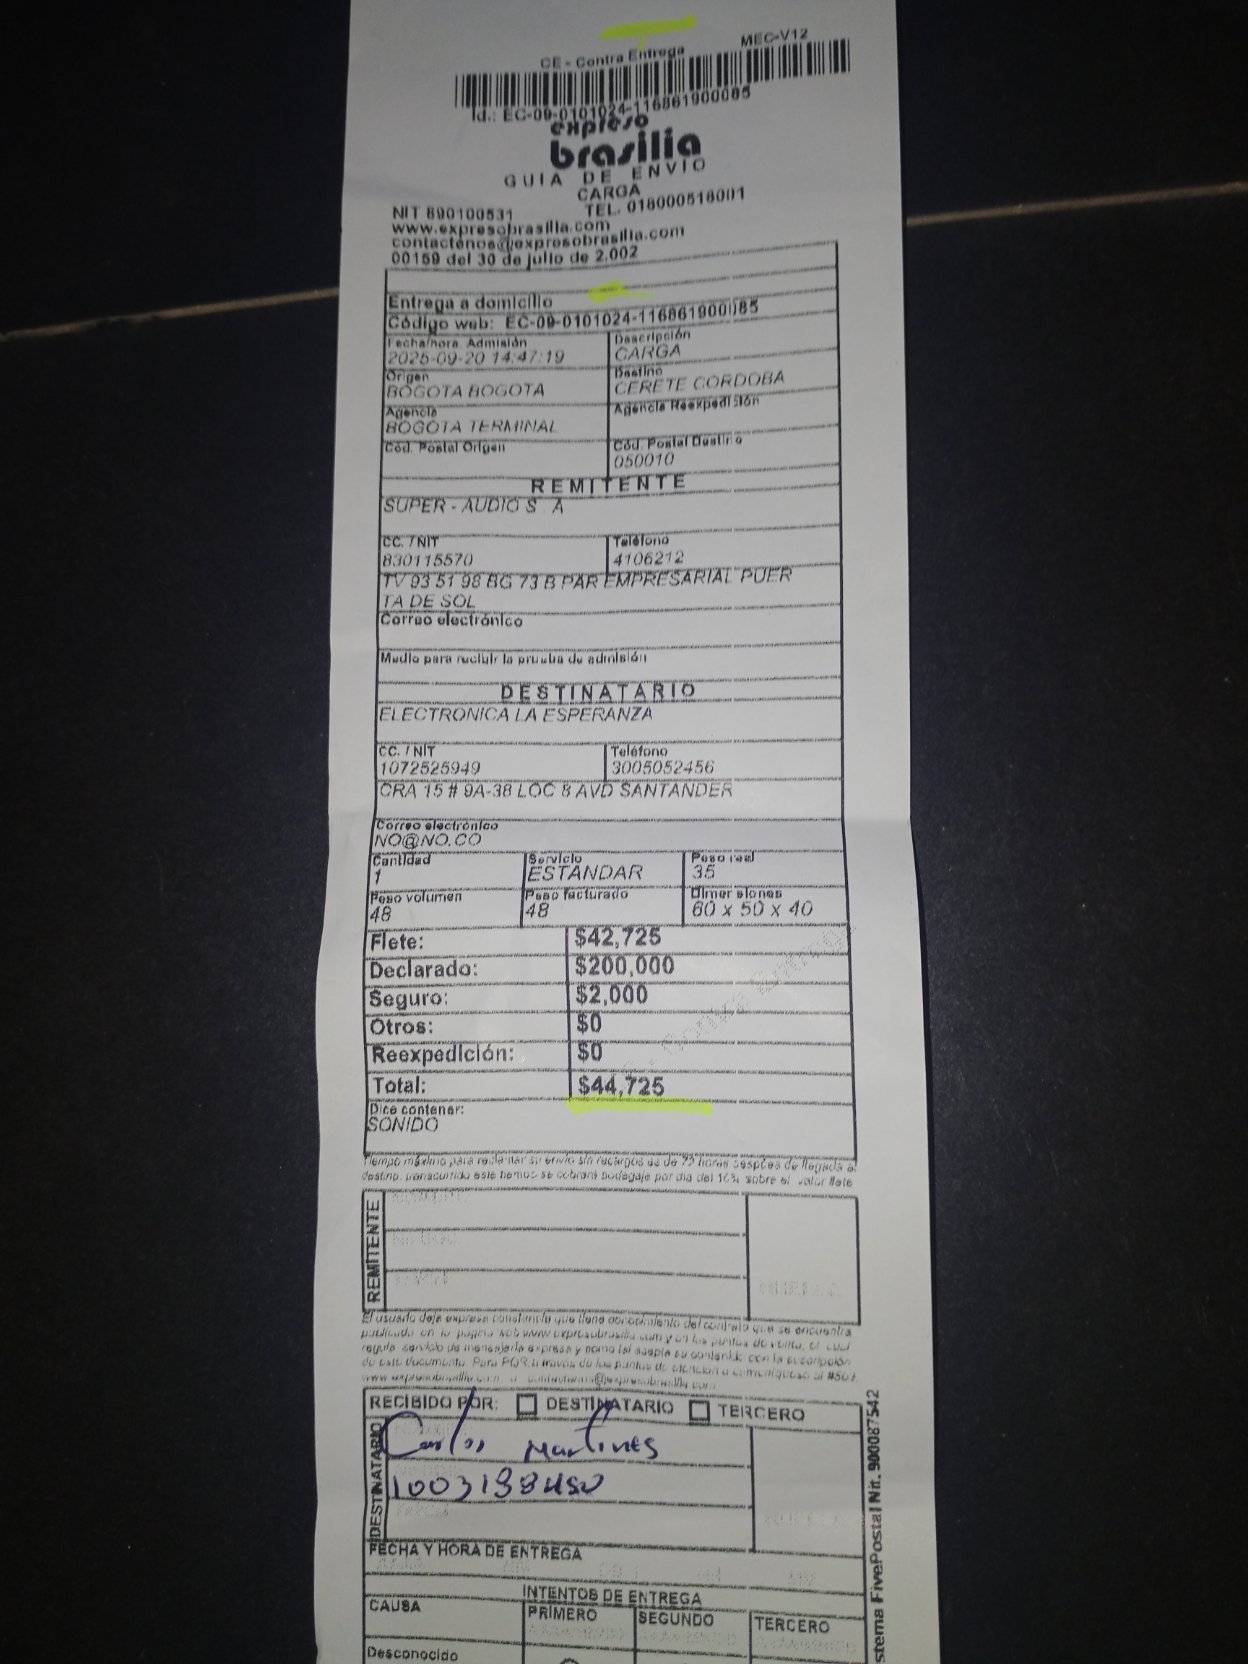 CE - Contra Entrega MEC-V12
Id.: EC-09-0101024-116861900085
expreso
brasilia
GUIA DE ENVIO
CARGA
NIT 890100531 TEL. 018000518001
www.expresobrasilia.com
contactenos@expresobrasilia.com
00159 del 30 de julio de 2.002
Entrega a domicilio
Código web: EC-09-0101024-116861900085
Fecha/hora. Admisión Descripción
2025-09-20 14:47:19 CARGA
Origen Destino
BOGOTA BOGOTA CERETE CORDOBA
Agencia Agencia Reexpedisión
BOGOTA TERMINAL
Cód. Postal Origen Cód. Postal Destino
050010
REMITENTE
SUPER - AUDIO S . A
CC. / NIT Teléfono
830115570 4106212
TV 93 51 98 BG 73 B PAR EMPRESARIAL PUER
TA DE SOL
Correo electrónico
Medio para recibir la prueba de admisión
DESTINATARIO
ELECTRONICA LA ESPERANZA
CC. / NIT Teléfono
1072525949 3005052456
CRA 15 # 9A-38 LOC 8 AVD SANTANDER
Correo electrónico
NO@NO.CO
Cantidad Servicio Peso real
1 ESTANDAR 35
Peso volumen Peso facturado Dimensiones
48 48 60 x 50 x 40
Flete: $42,725
Declarado: $200,000
Seguro: $2,000
Otros: $0
Reexpedición: $0
Total: $44,725
Dice contener:
SONIDO
Tiempo máximo para reclamar su envío sin recargos es de 72 horas despúes de llegada a
destino, transcurrido este tiempo se cobrará bodegaje por día del 10% sobre el valor flete
REMITENTE
El usuario deja expresa constancia que tiene conocimiento del contrato que se encuentra
publicado en la página web www.expresobrasilia.com y en los puntos de venta, el cual
regula servicio de mensajería expresa y como tal acepta su contenido con la suscripción
de este documento. Para PQR a través de los puntos de atención o comuníquese al #502,
www.expresobrasilia.com o contactenos@expresobrasilia.com
RECIBIDO POR: DESTINATARIO TERCERO
DESTINATARIO
Carlos Martines
FECHA Y HORA DE ENTREGA
INTENTOS DE ENTREGA
CAUSA PRIMERO SEGUNDO TERCERO
Desconocido
stema FivePostal Nit. 900087542